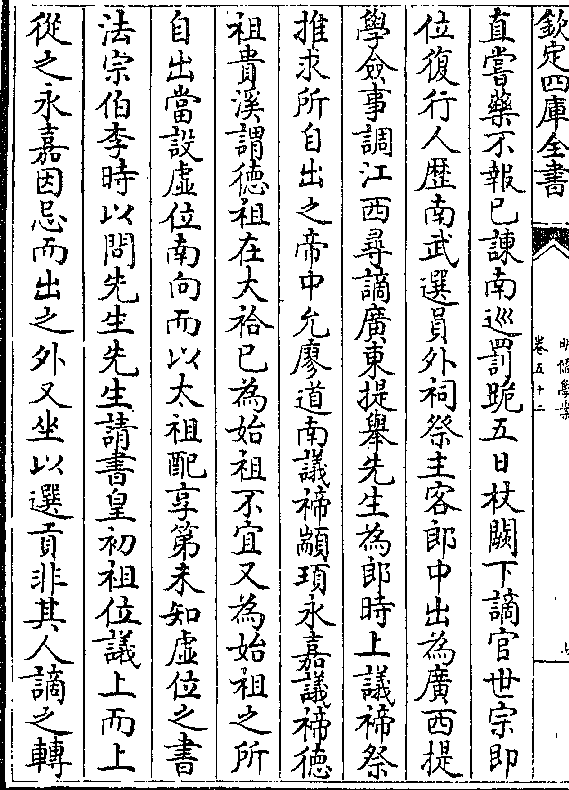 欽定四庫全書
明儒學案
卷五十二
直嘗藥不報已諌南巡罰跪五日杖闕下謫官世宗即
位復行人歴南武選員外祠祭主客郎中出為廣西提
學僉事調江西尋謫廣東提舉先生為郎時上議禘祭
推求所自出之帝中允廖道南議禘顓頊永嘉議禘徳
祖貴溪謂徳祖在大祫已為始祖不宜又為始祖之所
自出當設虛位南向而以太祖配享第未知虛位之書
法宗伯李時以問先生先生請書皇初祖位議上而上
從之永嘉因忌而出之外又坐以選貢非其人謫之轉